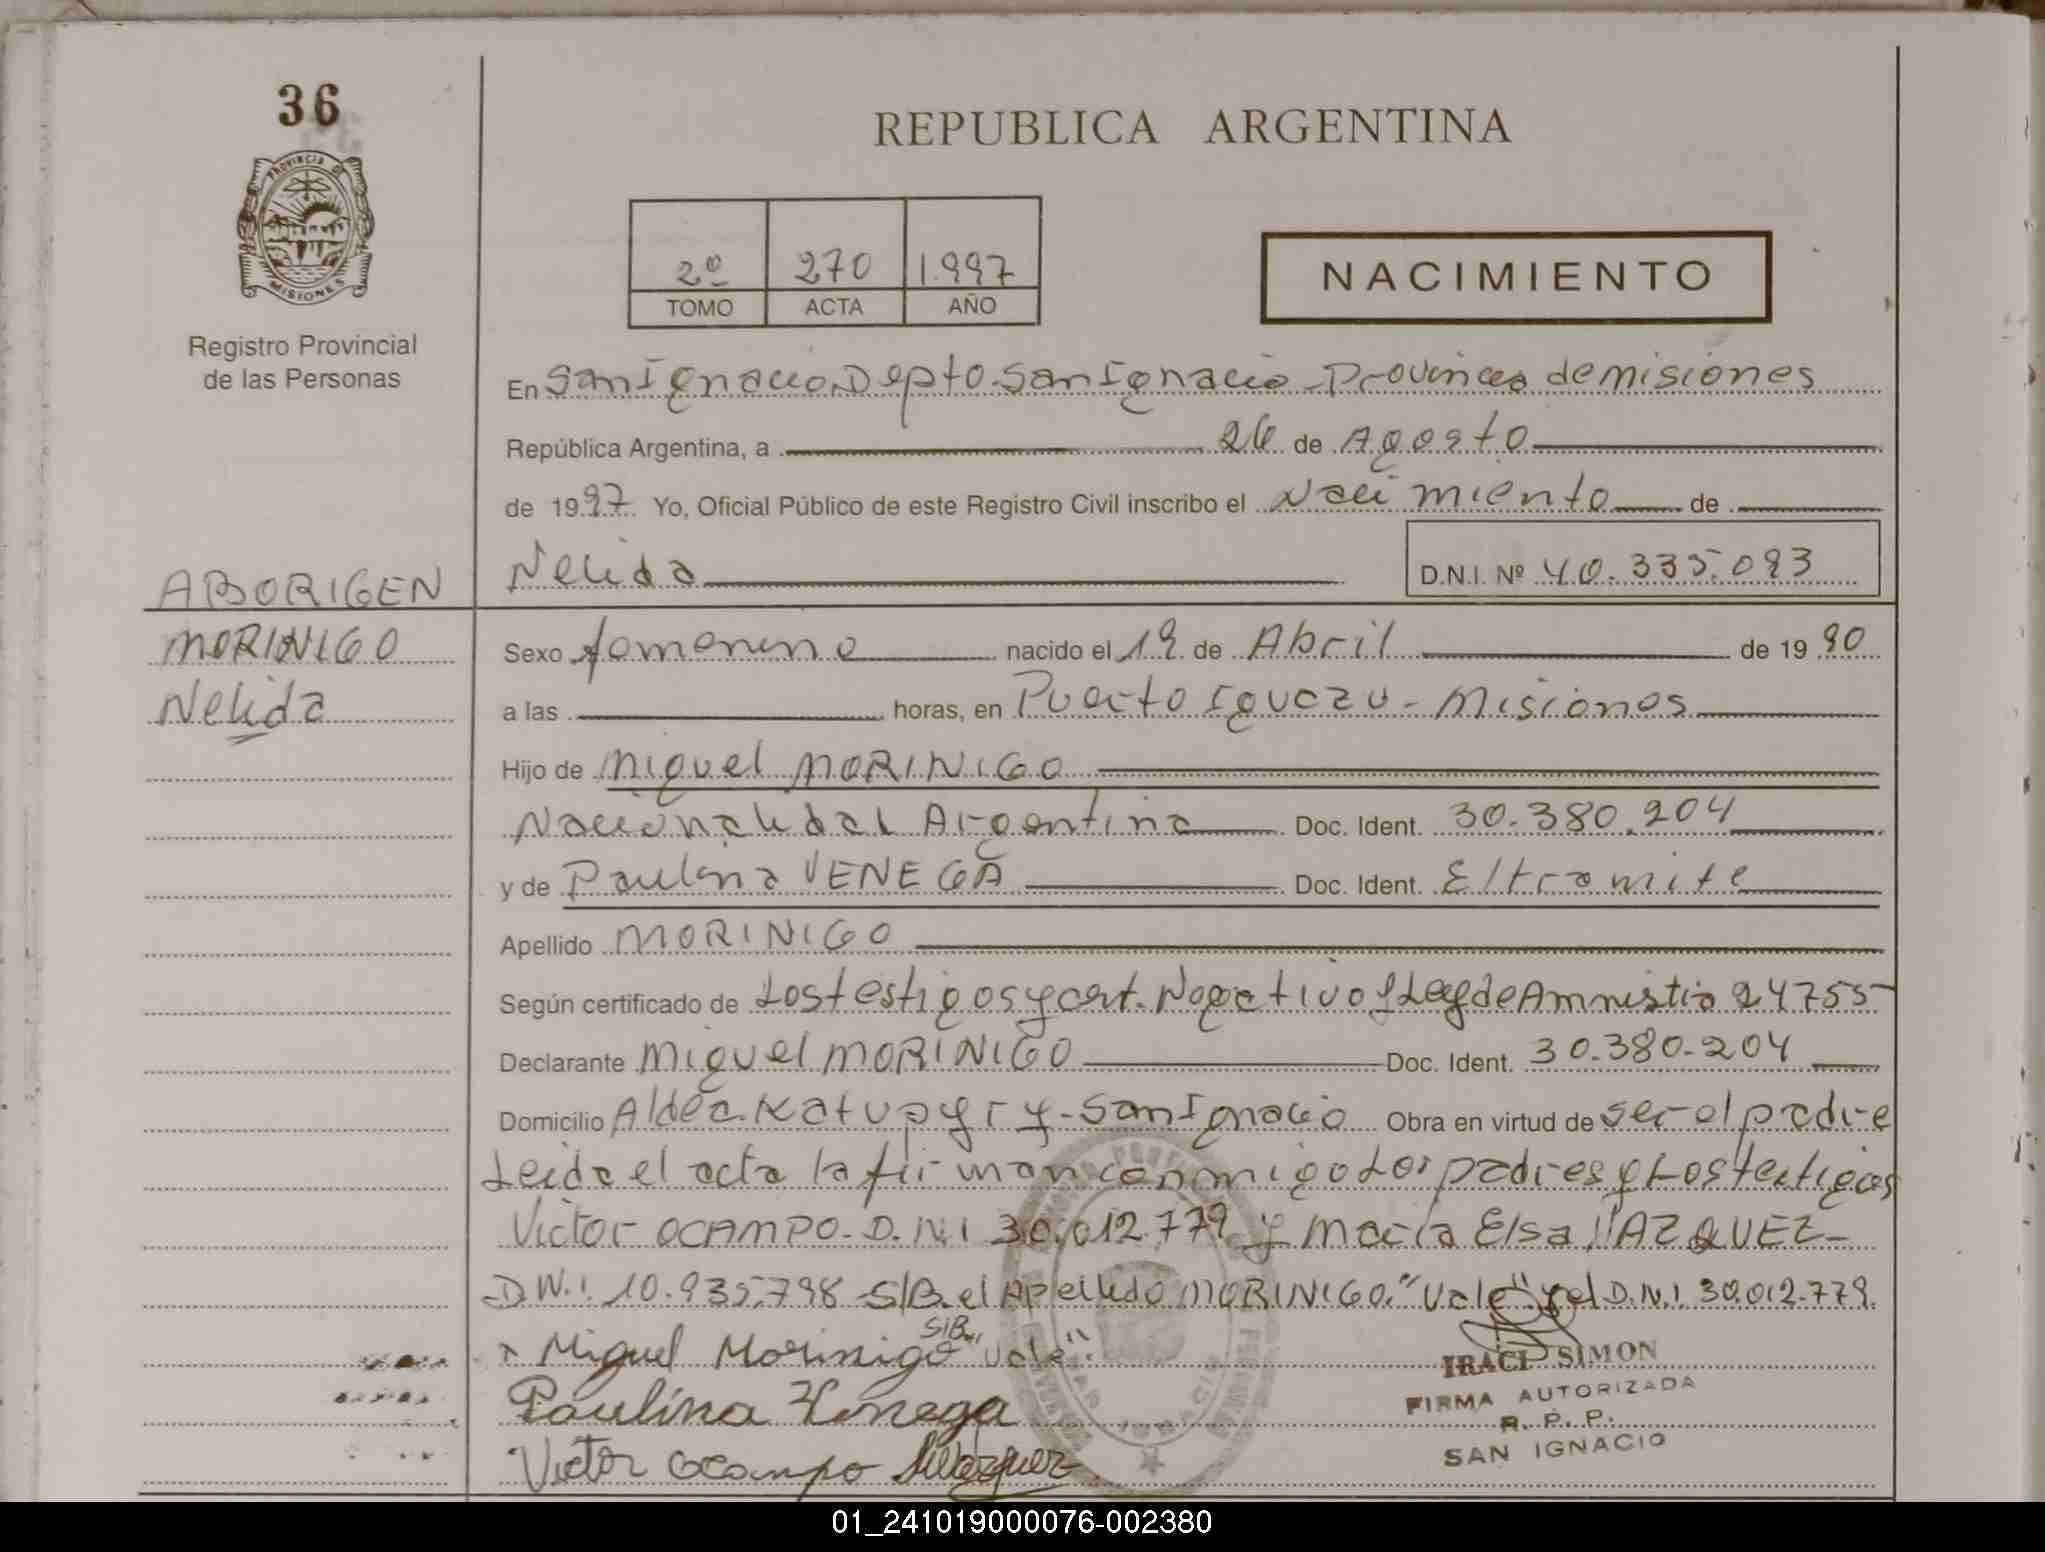 36
REPUBLICA ARGENTINA
PROVINCIA DE
MISIONES
Registro Provincial
de las Personas
2º 270 1.997
TOMO ACTA AÑO
NACIMIENTO
En San Ignacio, Depto. San Ignacio - Provincia de misiones
República Argentina, a 26 de Agosto
de 1997 Yo, Oficial Público de este Registro Civil inscribo el Nacimiento de
Nelida D.N.I. Nº 40.335.093
ABORIGEN
MORINIGO
Nelida
Sexo femenino nacido el 19 de Abril de 1990
a las horas, en Puerto Iguazu - Misiones
Hijo de Miguel MORINIGO
Nacionalidad Argentina Doc. Ident. 30.380.204
y de Paulina VENEGA Doc. Ident. E/tramite
Apellido MORINIGO
Según certificado de Los testigos y cert. Negativo y Ley de Amnistia 24755
Declarante Miguel MORINIGO Doc. Ident. 30.380.204
Domicilio Aldea Katupyry - San Ignacio Obra en virtud de ser el padre
Leida el acta la firman conmigo Los padres y Los testigos
Victor OCAMPO - D.N.I 30.012.779 y Maria Elsa VAZQUEZ -
D.N.I. 10.935.798 S/B. el Apellido MORINIGO. "Vale" y el D.N.I. 30.012.779.
x Miguel Morinigo S/B. "Vale".
Paulina Venega
Victor Ocampo MVazquez
IRACI SIMON
FIRMA AUTORIZADA
R. P. P.
SAN IGNACIO
01_241019000076-002380